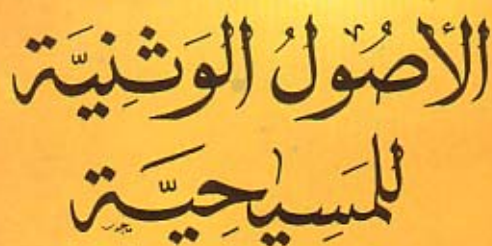 الأصُولُ الوَثنِيَّة
للمَسِيحِيَّة